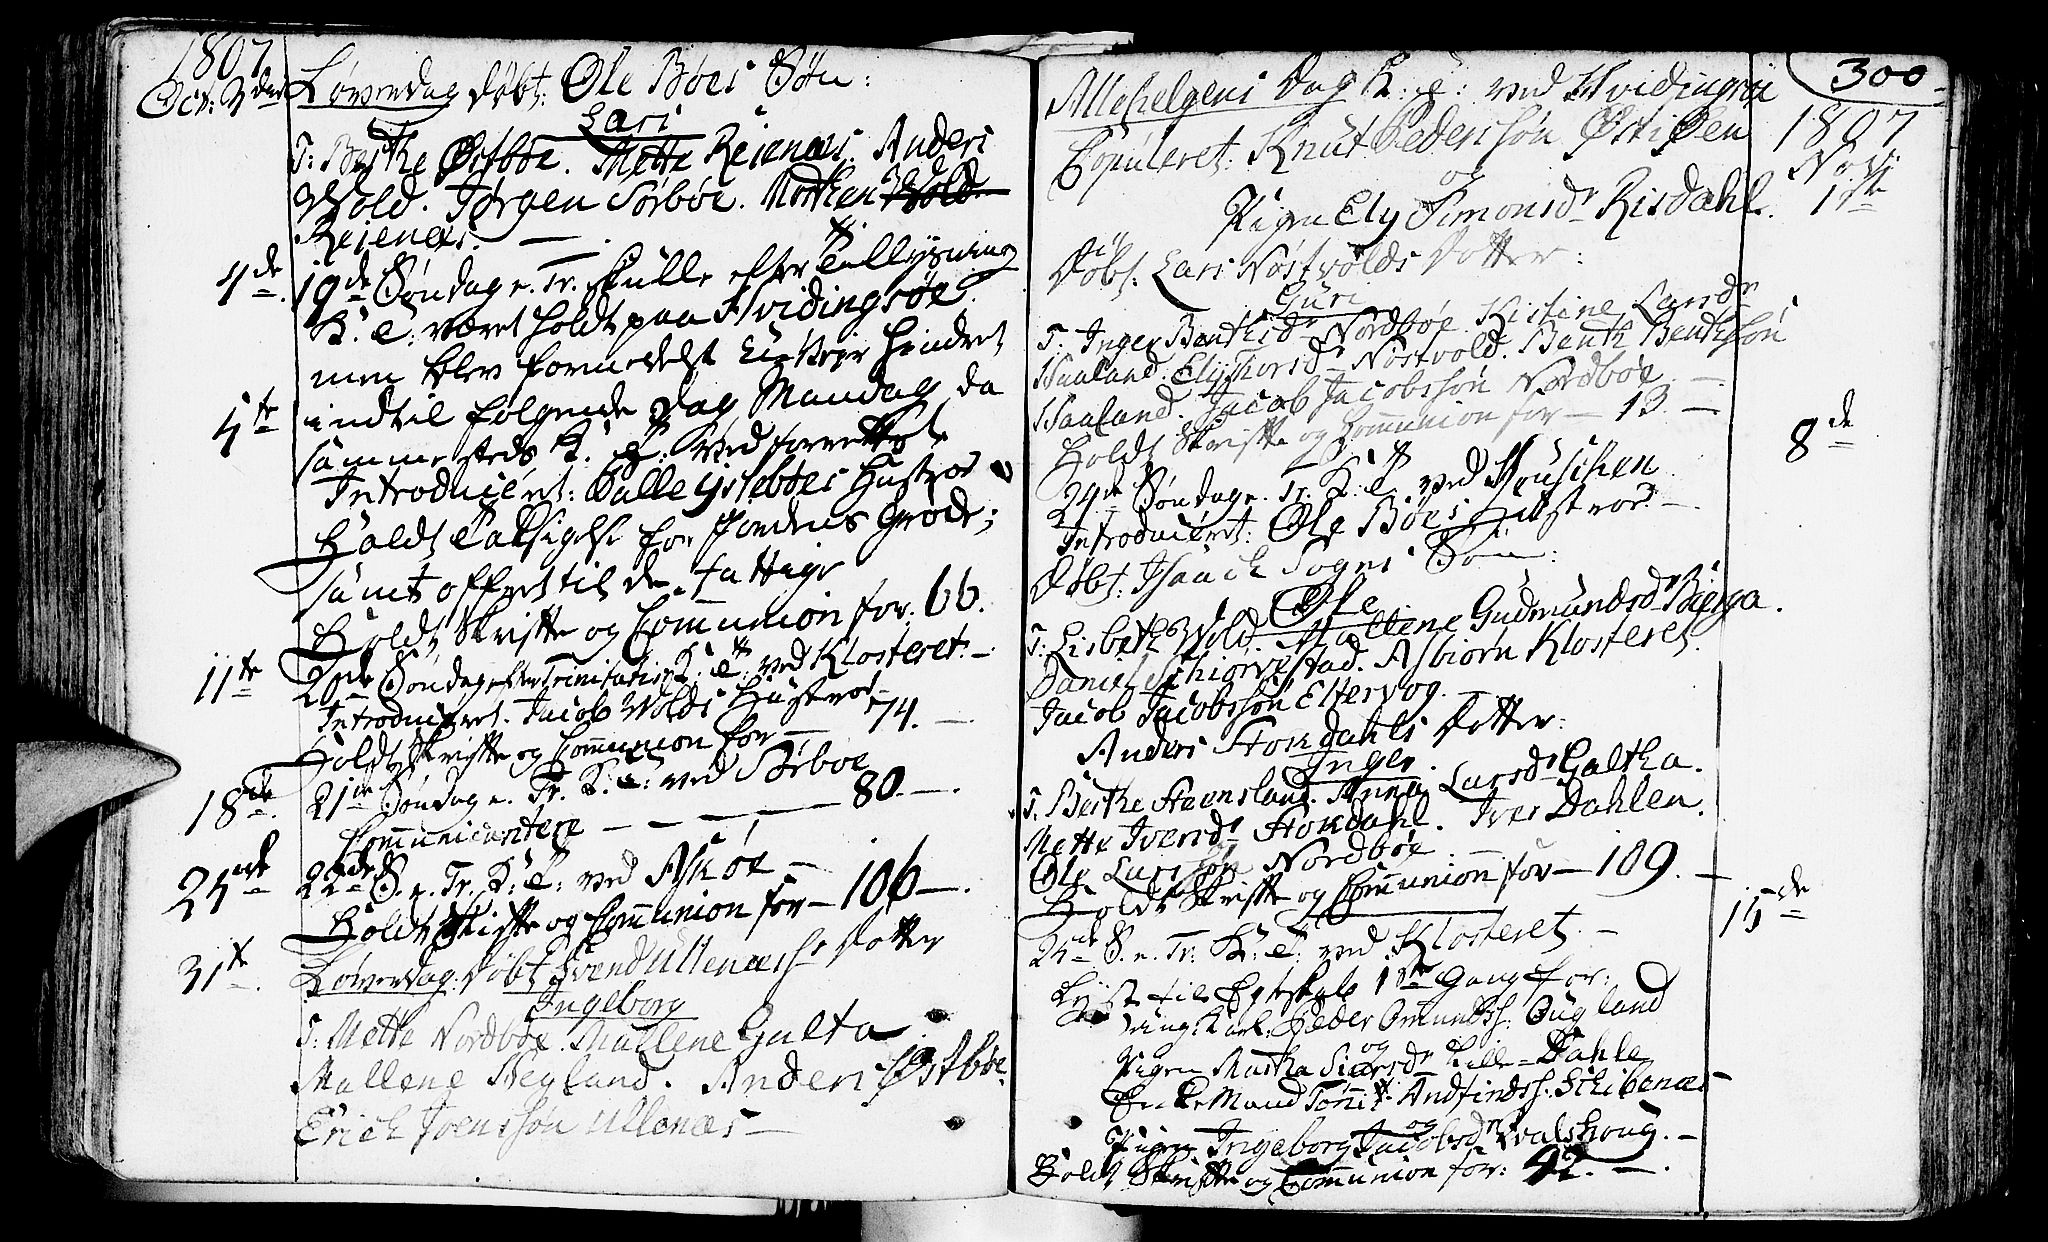 1807
Oct: 3die Løverdag døbt: Ole Bøes Søn:
Lars
T: Berthe Østbøe. Mette Reienæs. Anders
Wold. Jørgen Sørbøe. Morthen Wold
Reienæs.
4de 19de Søndag e. Tr. skulle efter Tillysning
K: T: været holdt paa Hvidingsøe.
men blev formedelst Uveyr hindret
5te indtil følgende Dag Mandag da
sammesteds K. T. blev forrettet
Introduceret: Palle Gislebøes Hustroe
Holdt Taksigelse for Jordens Grøde;
samt offret til de fattige
Holdt Skrifte og Communion for: 66.
11te 20de Søndag efter Trinitatis K: T: ved Klosteret.
Introduceret. Jacob Wolds Hustroe
Holdt Skrifte og Communion for — 74. —
18de. 21de Søndag e. Tr. K: T: ved Sørboe
Communicantere — — — — — 80. —.
25de 22de S. e. Tr. K: T: ved Askøe —
Holdt Skrifte og Communion for — 106 —.
31te. Løverdag: døbt Svend Ullenæss: Dotter
Ingeborg
T: Mette Nordbøe. Mallene Galta
Mallene Hegland. Anders Østbøe.
Erich Joensson Ullenæs —
300
Allehelgens Dag K: T: ved Hvidingsøe
1807
Copuleret: Knut Pedersøn Østiøen
Nov:
og
Pigen Ely Simonsdr Risdahl. 1te
Døbt: Lars Nøstvolds Dotter:
Guri
T: Inger Benthsdr Nordbøe. Kistine Larsdr
Haaland. Ely Thorsdr Nøstvold. Benth Benthsøn
Haaland. Jacob Jacobssøn Nordbøe. —
Holdt Skrifte og Communion for — 13. —
24de Søndag e. Tr. K: T: ved Houschen 8de
Introduceret: Ole Bøes Hustroe. —
Døbt: Isaach Sognes Søn:
Ole
T: Lisbeth Wold. Mallene Gudmundsdr Bierga.
Daniel Schiørvestad. Asbiørn Klosteret.
Jacob Jacobssøn Eltervog. —
Anders Stokdahls Dotter:
Inger.
T. Berthe Steensland. Anna Larsdr Galtha.
Mette Iversdr Stokdahl. Iver Dahlen.
Ole Larssøn Nordbøe
Holdt Skrifte og Communion for — 109. —
25de S. e. Tr: K: T: ved Klosteret. — 15de
Lyst til Egteskab 1ste Gang for:
Ung Karl: Peder Omundss: Øugland
og
Pigen Martha Siversdr Lille-Dahle
Enke Mand Tønnis Andfindss: Schibenæs —
og
Pigen Ingeborg Jacobsdr Hvalshoug. —
Holdt Skrifte og Communion for: 42. —.